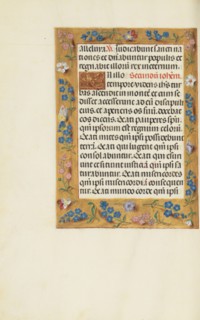 Alleluia. V. Iudicabunt sancti na
tiones et dn̄abuntur populis et
regnabit illorū rex in eternum.
In illo Secundū iohēm.
tempore videns ihs tur
bas ascendit in montē et cum se
disset accesserunt ad eū discipuli
eius. et aperiens os suū. docebat
eos dicens. Beati pauperes spū.
qm̄ ipsorum est regnum celorū.
Beati mites qm̄ ipsi possidebunt
terrā. Beati qui lugent qm̄ ipsi
consolabuntur. Beati qui esuri
unt et sitiunt iusticiā qm̄ ipsi sa
turabuntur. Beati misericordes
qm̄ ipsi misericordiā consequen
tur. Beati mundo corde qm̄ ipsi